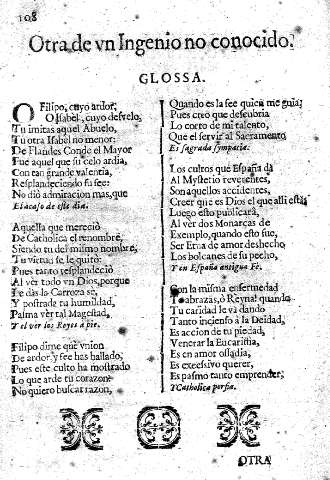 108
Otra de vn Ingenio no conocido.
GLOSSA.
O Filipo, cuyo ardor;
O Isabel, cuyo desvelo,
Tu imitas aquel Abuelo,
Tu otra Isabel no menor:
De Flandes Conde el Mayor
Fue aquel que su celo ardia,
Con tan grande valentia,
Resplandeciendo su fee:
No diò admiracion mas, que
El acaso de este dia.
Aquella que mereciò
De Catholica el renombre,
Siendo tu del mismo nombre,
Tu virtud se le quitò:
Pues tanto resplandeciò
Al ver todo vn Dios, porque
Le dàs lo Carroza se,
Y postrade tu humildad,
Palma ver tal Magestad,
Y el ver los Reyes à pie.
Filipo dime què vnion
De ardor, y fee has hallado,
Pues este culto ha mostrado
Lo que arde tu corazon:
No quiero buscar razon,
Quando es la fee quien me guia;
Pues creo que descubria
Lo corto de mi talento,
Que el servir al Sacramento
Es sagrada sympatia.
Los cultos que España dà
Al Mysterio reverentes,
Son aquellos accidentes,
Creer que es Dios el que alli està:
Luego esto publicarà,
Al vèr dos Monarcas de
Exemplo, quando esto fue,
Ser Etna de amor deshecho
Los bolcanes de su pecho,
Y en España antigua Fè.
Con la misma enfermedad
Te abrazas, ò Reyna! quando
Tu caridad le và dando
Tanto incienso à la Deidad,
Es accion de tu piedad,
Venerar la Eucaristia,
Es en amor ossadia,
Es excessivo querer,
Es pasmo tanto emprender;
Y Catholica porfia.
OTRA